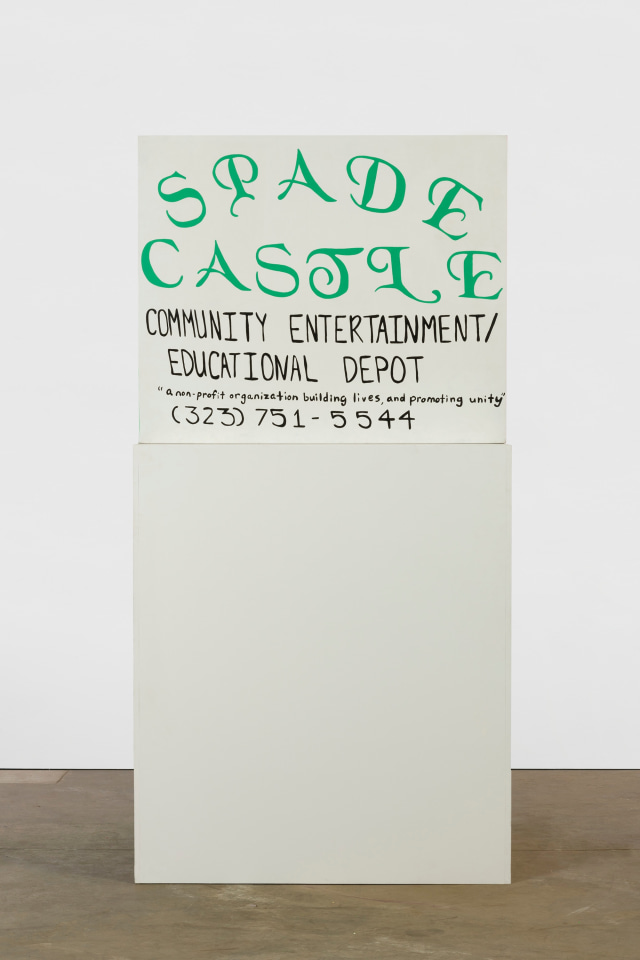 SPADE
CASTLE
COMMUNITY ENTERTAINMENT/
EDUCATIONAL DEPOT
"a non-profit organization building lives, and promoting unity"
(323) 751-5544